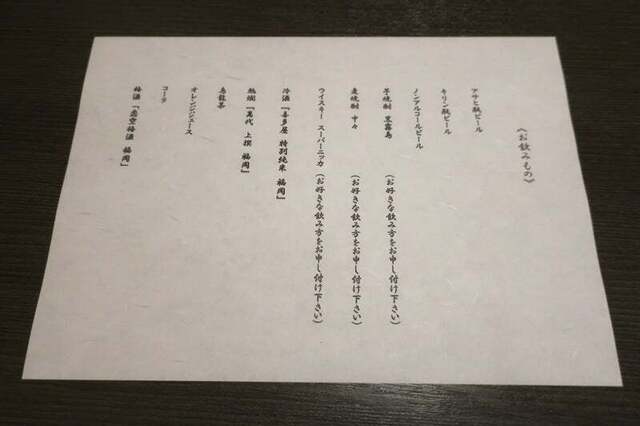 《お飲みもの》
アサヒ瓶ビール
キリン瓶ビール
ノンアルコールビール
芋焼酎 黒霧島 (お好きな飲み方をお申し付け下さい)
麦焼酎 中々 (お好きな飲み方をお申し付け下さい)
ウイスキー スーパーニッカ (お好きな飲み方をお申し付け下さい)
冷酒『喜多屋 特別純米 福岡』
熱燗『萬代 上撰 福岡』
烏龍茶
オレンジジュース
コーラ
梅酒『虚空梅酒 福岡』